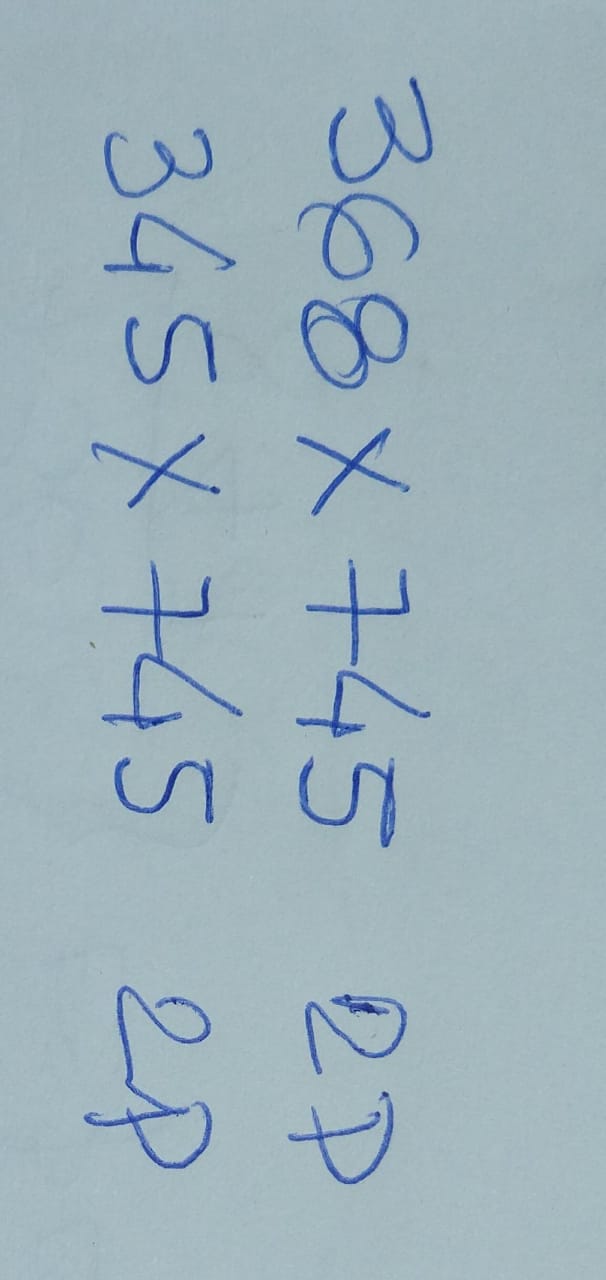 368 X 745 2P
345 X 745 2P